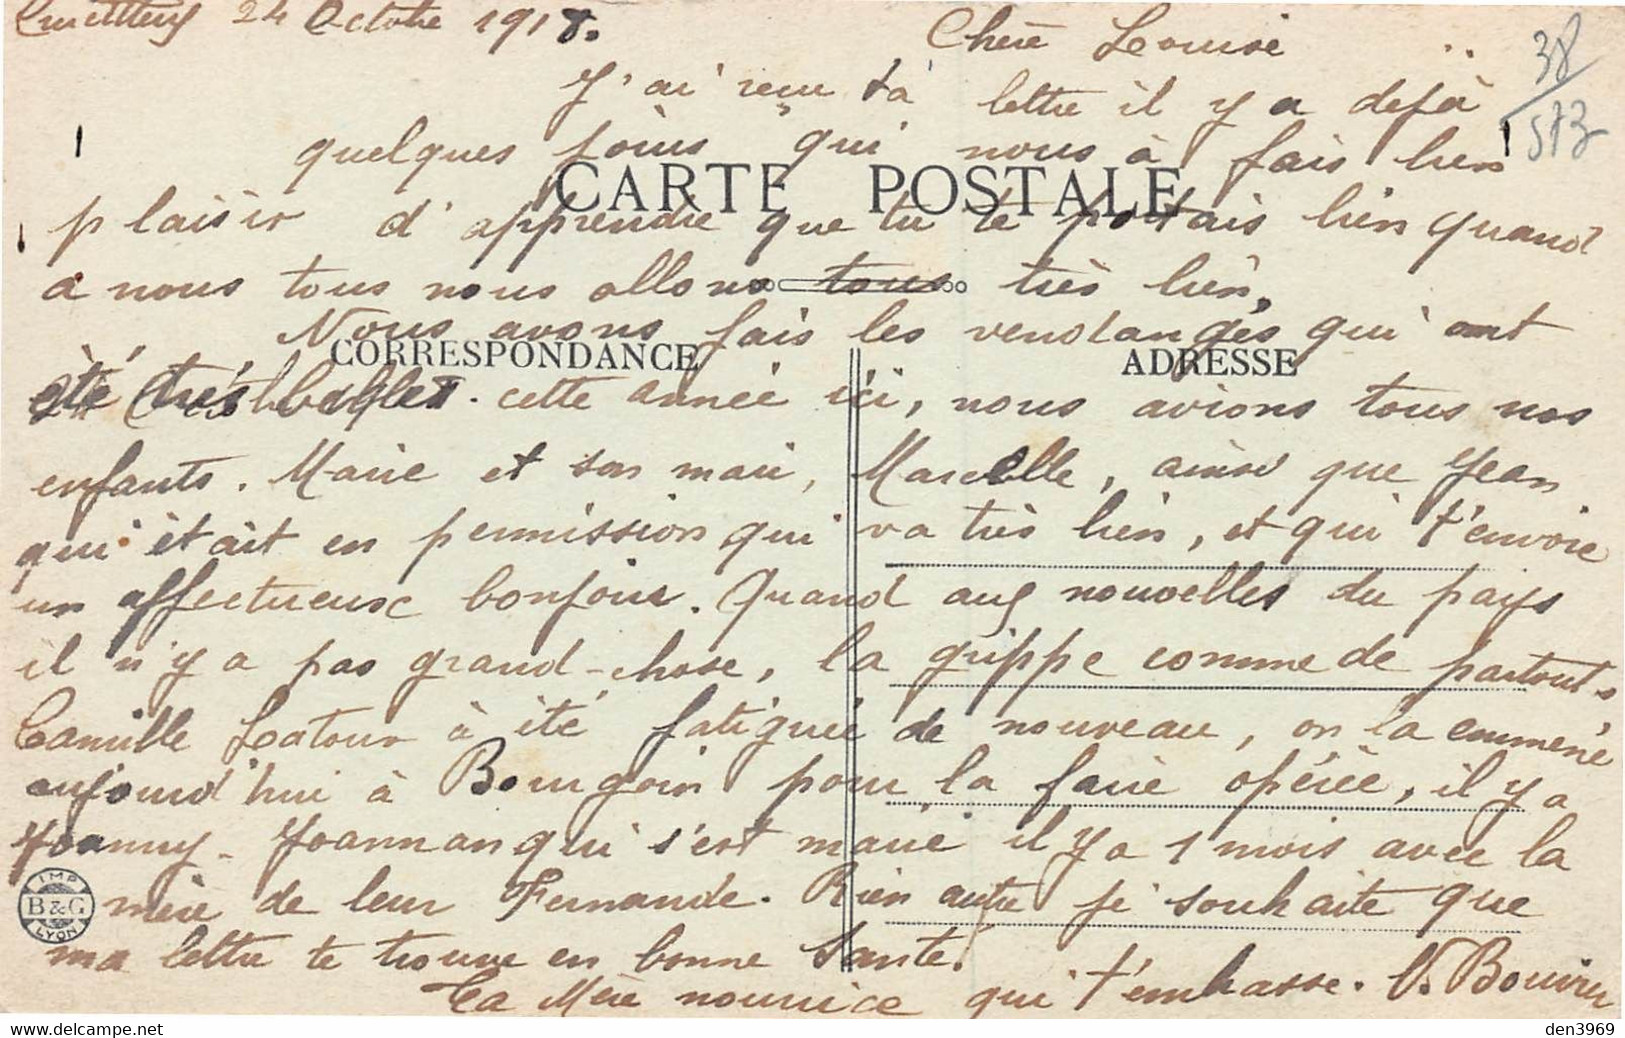 24 Octobre 1918. Chère Louise
38
513
J'ai reçu ta lettre il y a dejà
quelques jours qui nous à fais bien
CARTE POSTALE
plaisir d'apprendre que tu te portais bien quand
a nous tous nous allons tous très bien.
Nous avons fais les vendanges qui ont
CORRESPONDANCE ADRESSE
été très belles. cette année ici, nous avions tous nos
enfants. Marie et son mari, Marcelle, ainsi que Jean
qui était en permission qui va très bien, et qui t'envoie
un affectueuse bonjour. Quand aux nouvelles du pays
il n'y a pas grand-chose, la grippe comme de partout.
Camille Latour à été fatiguée de nouveau, on la emmené
aujourd'hui à Bourgoin pour la faire opérée, il y a
Joanny-Joannan qui s'est marié il y a 1 mois avec la
IMP B&G LYON
mère de leur Fernande. Rien autre je souhaite que
ma lettre te trouve en bonne Sante.
Ta Mère nourrice qui t'embrasse. V. Bouvier
den3969